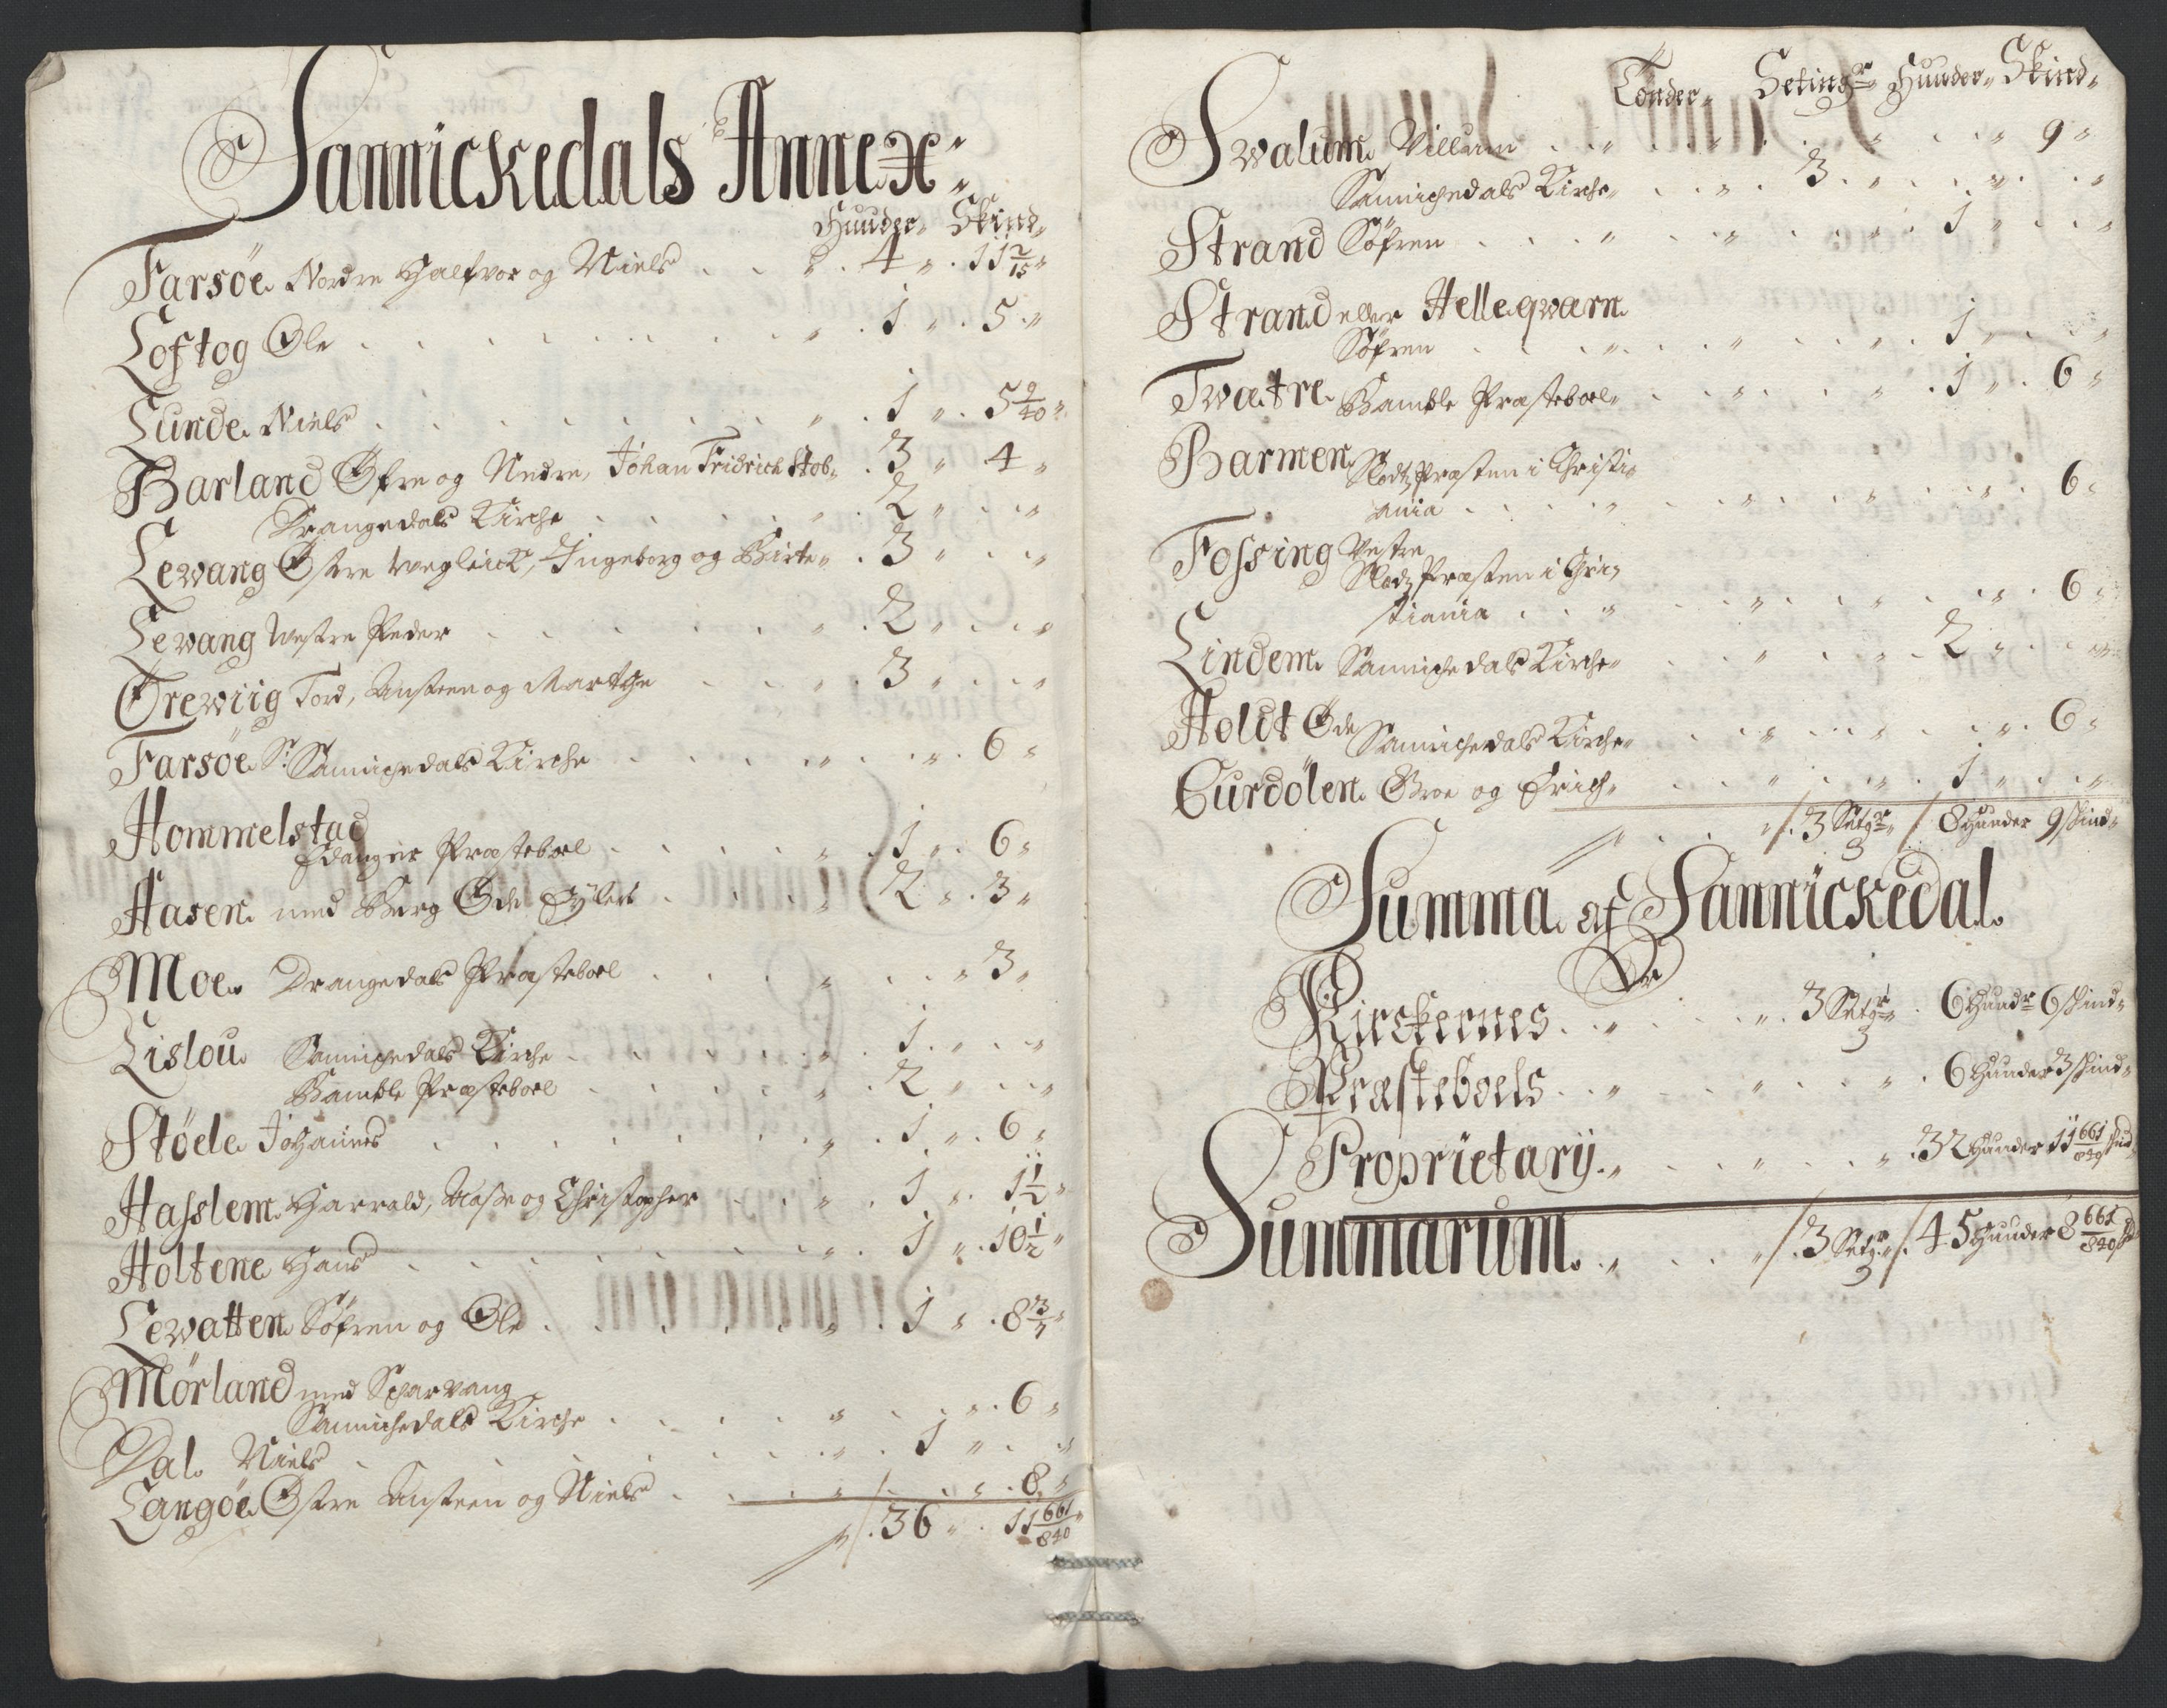 Sannickedals Annex:
Hunder Skind
Farsöe Nordre Halfvor og Niels . . 4 . 11 2/15
Loftog Ole . . . 1 . 5
Lunde Niels . . . 1 . 5 9/40
Barland Øfre og Nedre, Johan Fridrich Stob . 3 . 4
Drangedals Kirche . . . 2
Lewang Østre Ingeborg og Birte . 3
Lewang Westre Peder . . . 2
Orewiig Tord, Ansteen og Marthe . . . 3
Farsöe Sr Sannichedals Kirche . . . 6
Hommelstad
Edanger Præsteboel . . . 1 . 6
Hasen med Berg Øde Eylert . . . 2 . 3
Moe Drangedals Præsteboel . . . 3
Lislou Sannichedals Kirche . . . 1
Bamble Præsteboel . . . 2
Støele Johannes . . . 1 . 6
Hasslem Harrald, Aasse og Christopher . . . 1 . 1 1/2
Holtene Hans . . . 1 . 10 1/2
Lewatten Söfren og Ole . . . 1 . 8 3/7
Mørland med Scharvang
Sannichedals Kirche . . . 6
Dal Niels . . . 1
Langöe Østre Ansteen og Niels . . . 8
36 . 11 661/840
Tønder Setingr Hunder Skind
Swalum Villum . . . 9
Sannichedals Kirche . . 3
Strand Söfren . . . 1
Strand eller Helleqwarn
Söfren . . . 1
Twatre Bamble Præsteboel . . . 1 . 6
Barmen Slodtz Præsten i Christi
ania . . . 6
Fossing Vestre
Slodtz Præsten i Chri
stiania . . . 6
Lindem Sannichedals Kirche . . . 2
Holdt Øde Sannichedals Kirche . . . 6
Curdölen Groe og Erich . . . 1
3 Setgr 8 Hunder 9 Skind
Summa af Sannickedal
Er
Kirckernes . . . 3 Setgr . 6 Hundr 6 Skind
Præsteboels . . . 6 Hunder 3 Skind
Proprietarij . . . 32 Hunder 11 661/840 Skind
Summarum . . . 3 Setgr 45 Hunder 8 661/840